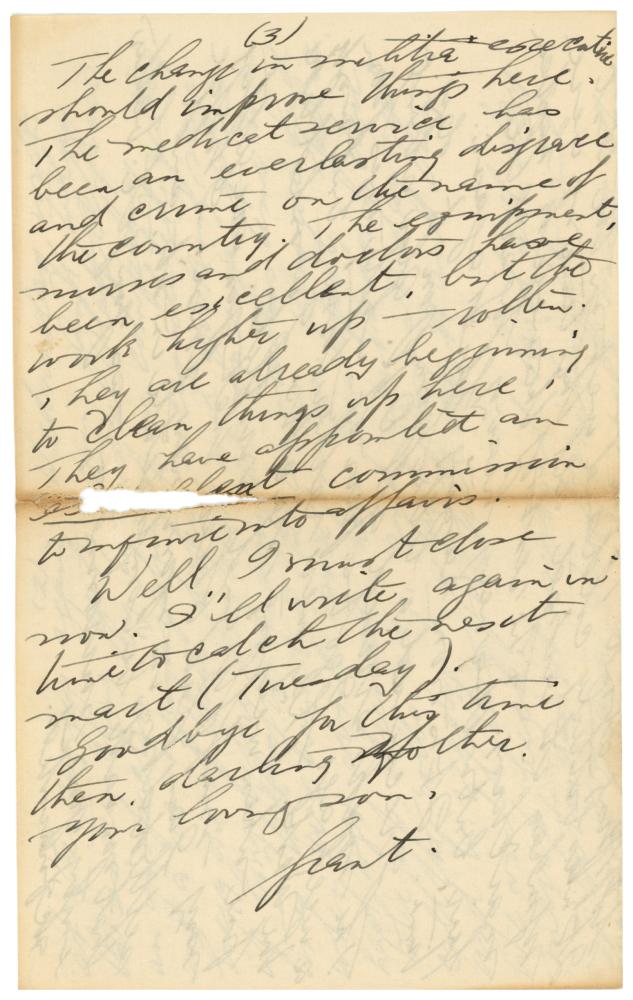 (3)
The change in militia executive
should improve things here.
The medical service has
been an everlasting disgrace
and crime on the name of
the country. The equipment,
nurses and doctors have
been excellent, but the
work higher up — rotten.
They are already beginning
to clean things up here,
They have appointed an
commission
to inquire into affairs.
Well, I must close
now. I'll write again in
time to catch the next
mail (Tuesday).
Goodbye for this time
then, darling Mother.
Your loving son,
Grant.